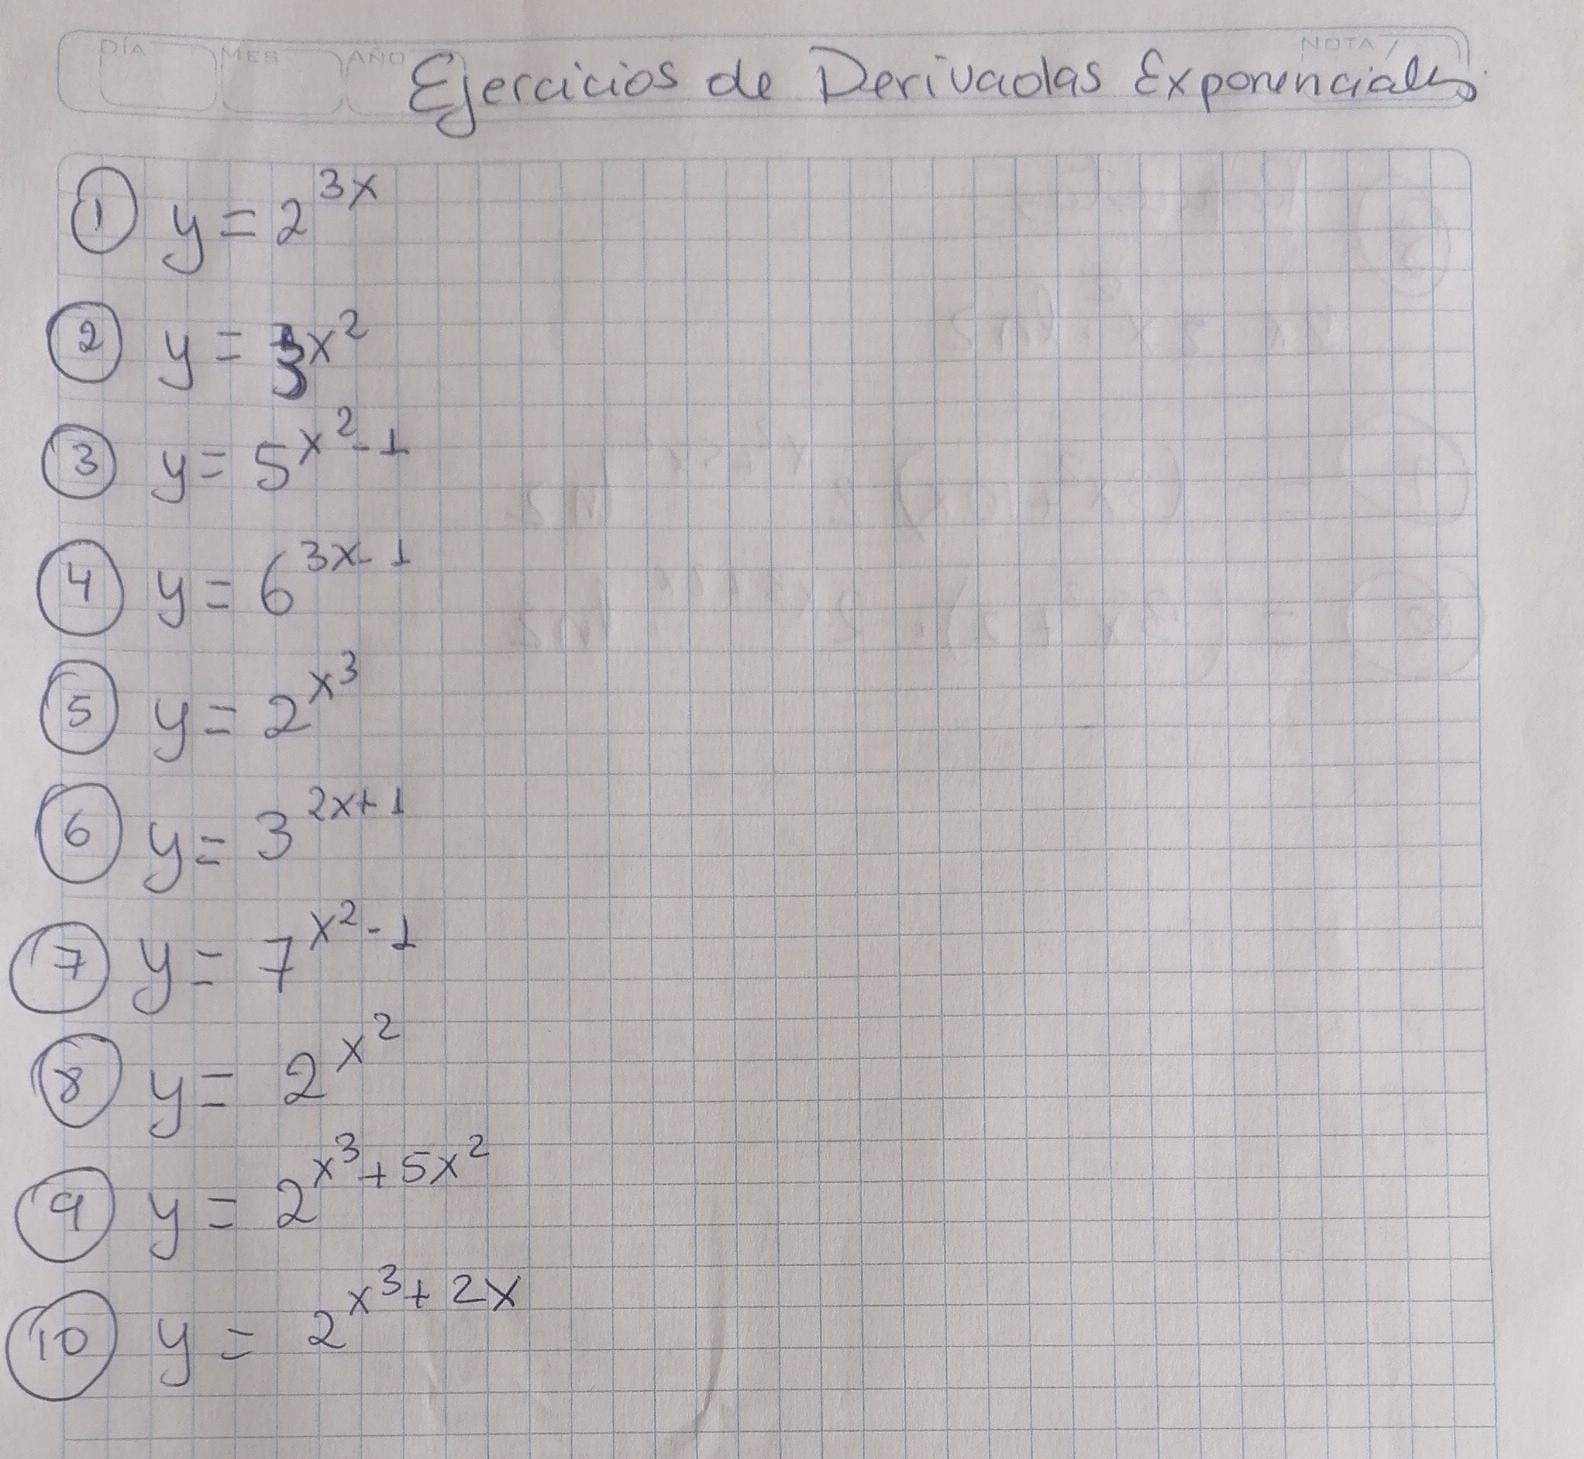 DÍA MES AÑO NOTA
Ejercicios de Derivadas Exponenciales
① y = 2^{3x}
② y = 3^{x^2}
③ y = 5^{x^2-1}
④ y = 6^{3x-1}
⑤ y = 2^{x^3}
⑥ y = 3^{2x+1}
⑦ y = 7^{x^2-1}
⑧ y = 2^{x^2}
⑨ y = 2^{x^3+5x^2}
⑩ y = 2^{x^3+2x}